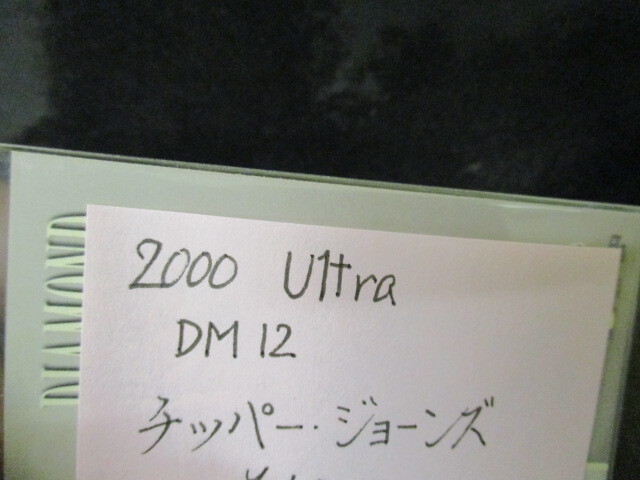 DIAMOND
2000 Ultra
DM 12
チッパー・ジョーンズ